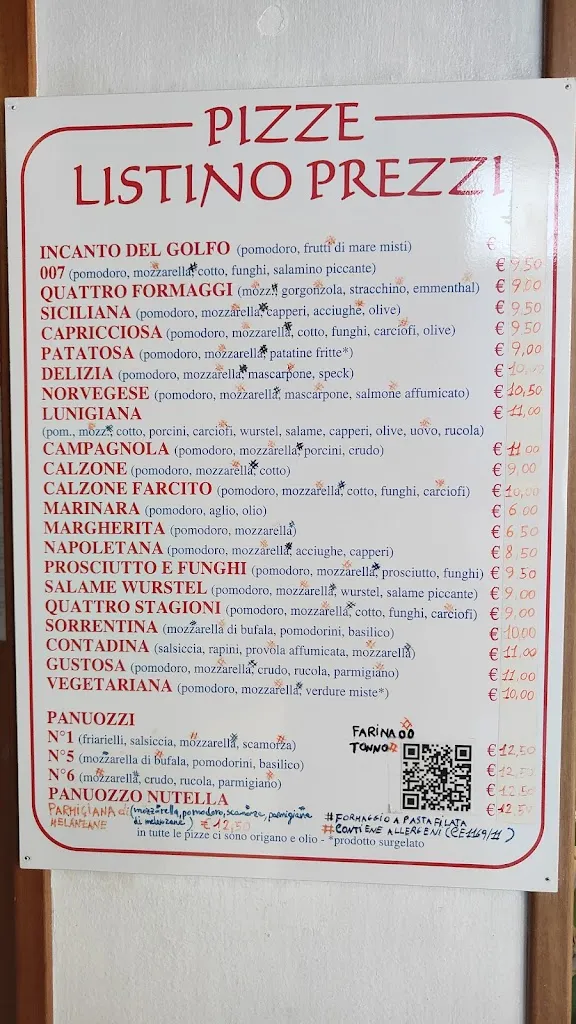 PIZZE
LISTINO PREZZI
INCANTO DEL GOLFO (pomodoro, frutti di mare misti) €
007 (pomodoro, mozzarella, cotto, funghi, salamino piccante) € 9,50
QUATTRO FORMAGGI (mozz., gorgonzola, stracchino, emmenthal) € 9,00
SICILIANA (pomodoro, mozzarella, capperi, acciughe, olive) € 9,50
CAPRICCIOSA (pomodoro, mozzarella, cotto, funghi, carciofi, olive) € 9,50
PATATOSA (pomodoro, mozzarella, patatine fritte*) € 9,00
DELIZIA (pomodoro, mozzarella, mascarpone, speck) € 10,00
NORVEGESE (pomodoro, mozzarella, mascarpone, salmone affumicato) € 10,50
LUNIGIANA € 11,00
(pom., mozz., cotto, porcini, carciofi, wurstel, salame, capperi, olive, uovo, rucola)
CAMPAGNOLA (pomodoro, mozzarella, porcini, crudo) € 11,00
CALZONE (pomodoro, mozzarella, cotto) € 9,00
CALZONE FARCITO (pomodoro, mozzarella, cotto, funghi, carciofi) € 10,00
MARINARA (pomodoro, aglio, olio) € 6,00
MARGHERITA (pomodoro, mozzarella) € 6,50
NAPOLETANA (pomodoro, mozzarella, acciughe, capperi) € 8,50
PROSCIUTTO E FUNGHI (pomodoro, mozzarella, prosciutto, funghi) € 9,50
SALAME WURSTEL (pomodoro, mozzarella, wurstel, salame piccante) € 9,00
QUATTRO STAGIONI (pomodoro, mozzarella, cotto, funghi, carciofi) € 9,00
SORRENTINA (mozzarella di bufala, pomodorini, basilico) € 10,00
CONTADINA (salsiccia, rapini, provola affumicata, mozzarella) € 11,00
GUSTOSA (pomodoro, mozzarella, crudo, rucola, parmigiano) € 11,00
VEGETARIANA (pomodoro, mozzarella, verdure miste*) € 10,00
PANUOZZI
N°1 (friarielli, salsiccia, mozzarella, scamorza) € 12,50
N°5 (mozzarella di bufala, pomodorini, basilico) € 12,50
N°6 (mozzarella, crudo, rucola, parmigiano) € 12,50
PANUOZZO NUTELLA € 12,50
FARINA 00
TONNO
PARMIGIANA di (mozzarella, pomodoro, scamorza, parmigiana
MELANZANE di melanzane) € 12,50
#FORMAGGIO A PASTA FILATA
#CONTIENE ALLERGENI (CE1169/11)
in tutte le pizze ci sono origano e olio - *prodotto surgelato